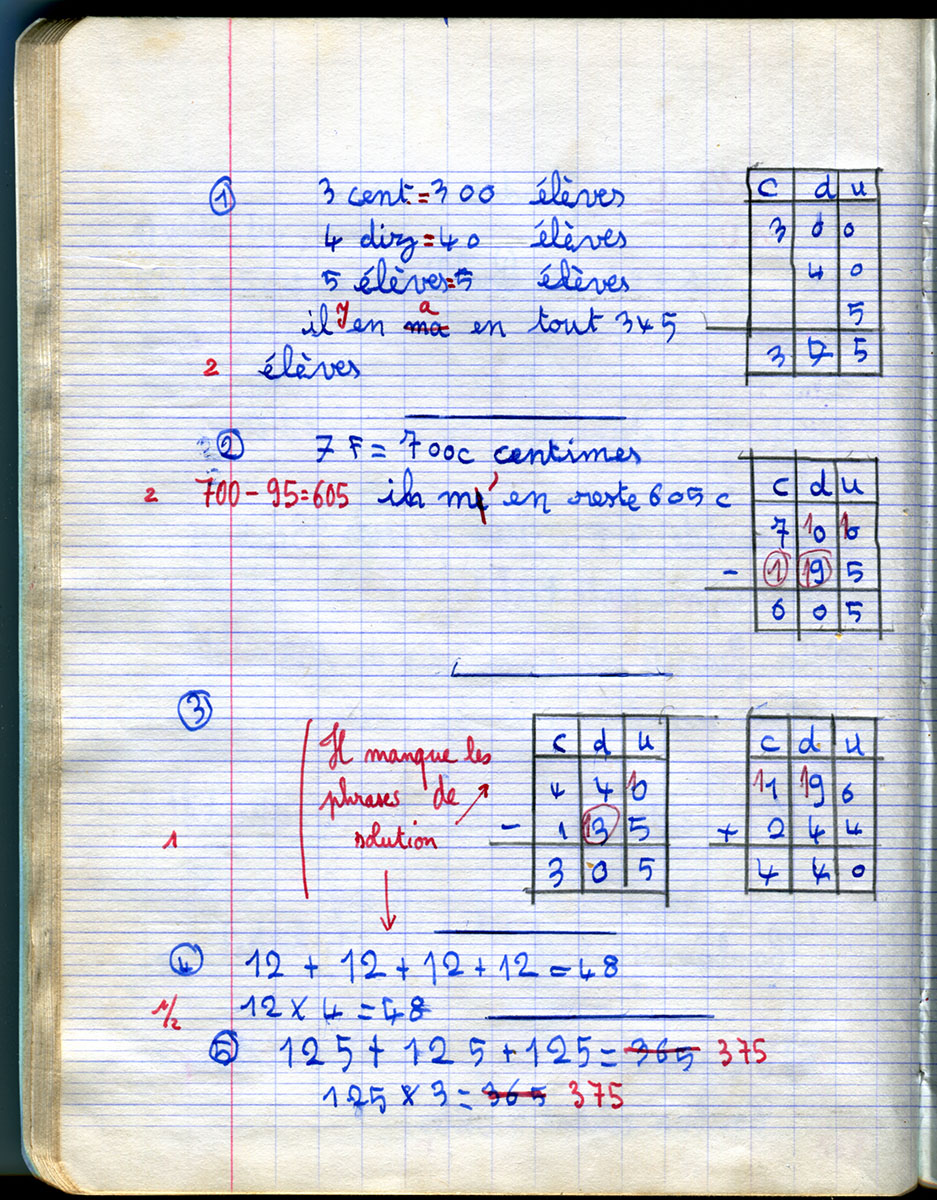 ① 3 cent = 300 élèves
4 diz = 40 élèves
5 élèves = 5 élèves
il y en ma a en tout 345
2 élèves
c d u
3 0 0
4 0
5
3 5
② 7 F = 700c centimes
2 700 - 95 = 605 il m' en reste 605 c
c d u
7 10 10
- 1 19 5
6 0 5
③
Il manque les
phrases de
solution
1
c d u
4 4 10
- 1 13 5
3 0 5
c d u
11 19 6
+ 2 4 4
4 4 0
④ 12 + 12 + 12 + 12 = 48
1/2 12 x 4 = 48
⑤ 125 + 125 + 125 = 365 375
125 x 3 = 365 375